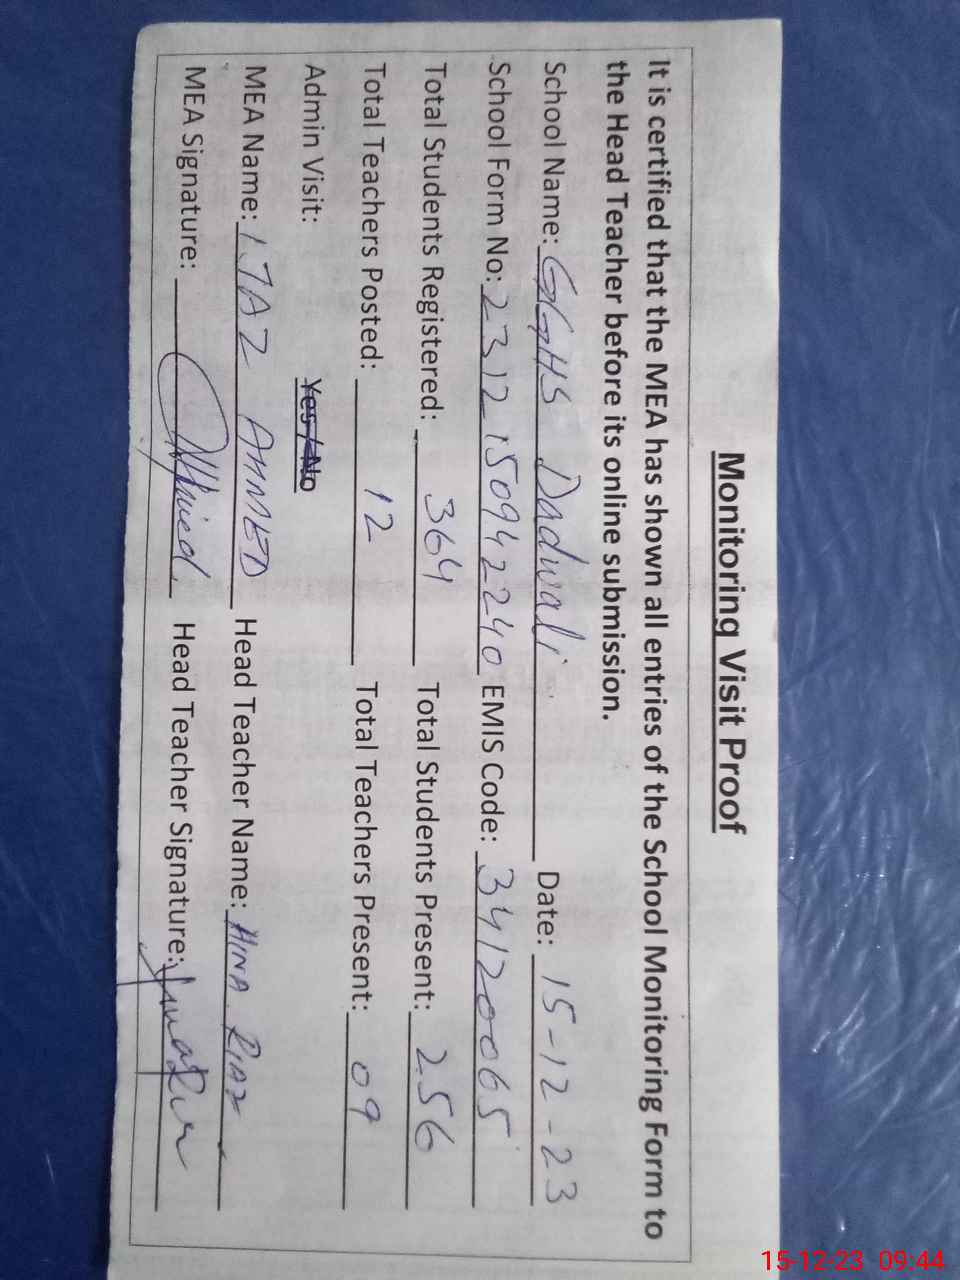 Monitoring Visit Proof
It is certified that the MEA has shown all entries of the School Monitoring Form to
the Head Teacher before its online submission.
School Name: GGHS Dadwali Date: 15-12-23
School Form No: 2312 150942240 EMIS Code: 34120065
Total Students Registered: 364 Total Students Present: 256
Total Teachers Posted: 12 Total Teachers Present: 09
Admin Visit: Yes / No
MEA Name: IJAZ AHMED Head Teacher Name: HINA RIAZ
MEA Signature: Head Teacher Signature:
15-12-23 09:44